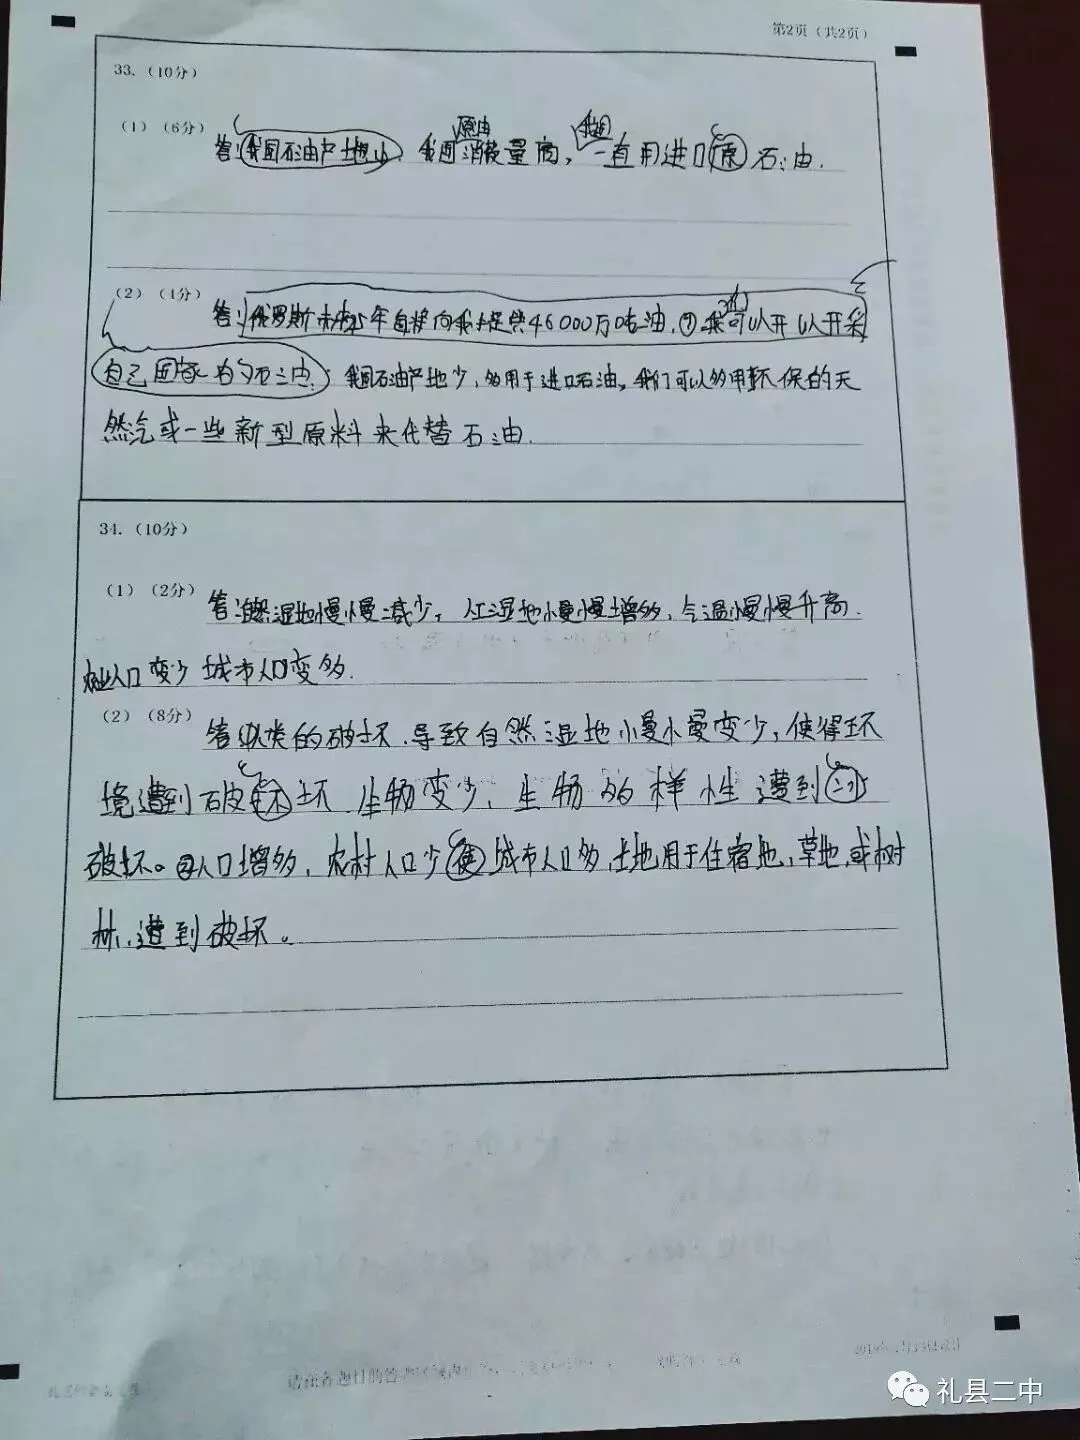 第2页（共2页）
33.（10分）
原油 我国
（1）（6分） 答:我国石油产地少，我国消费量高，一直用进口原石油.
（2）（4分） 答:俄罗斯未来25年直接向我 提供46000万吨石油，②我 可以开以开采
自己国家的石油. 我国石油产地少，多用于进口石油，我们可以多用环保的天
然汽或一些新型原料来代替石油.
34.（10分）
（1）（2分） 答:自然湿地慢慢减少，人工湿地慢慢增多，气温慢慢升高.
农业人口变少 城市人口变多.
（2）（8分） 答: 类的破坏.导致自然湿地慢慢变少，使得环
境遭到破坏 生物变少，生物的样性遭到
破坏。②人口增多，农村人口少使城市人口多，土地用于住宿地，草地，或树
林，遭到破坏。
礼县二中